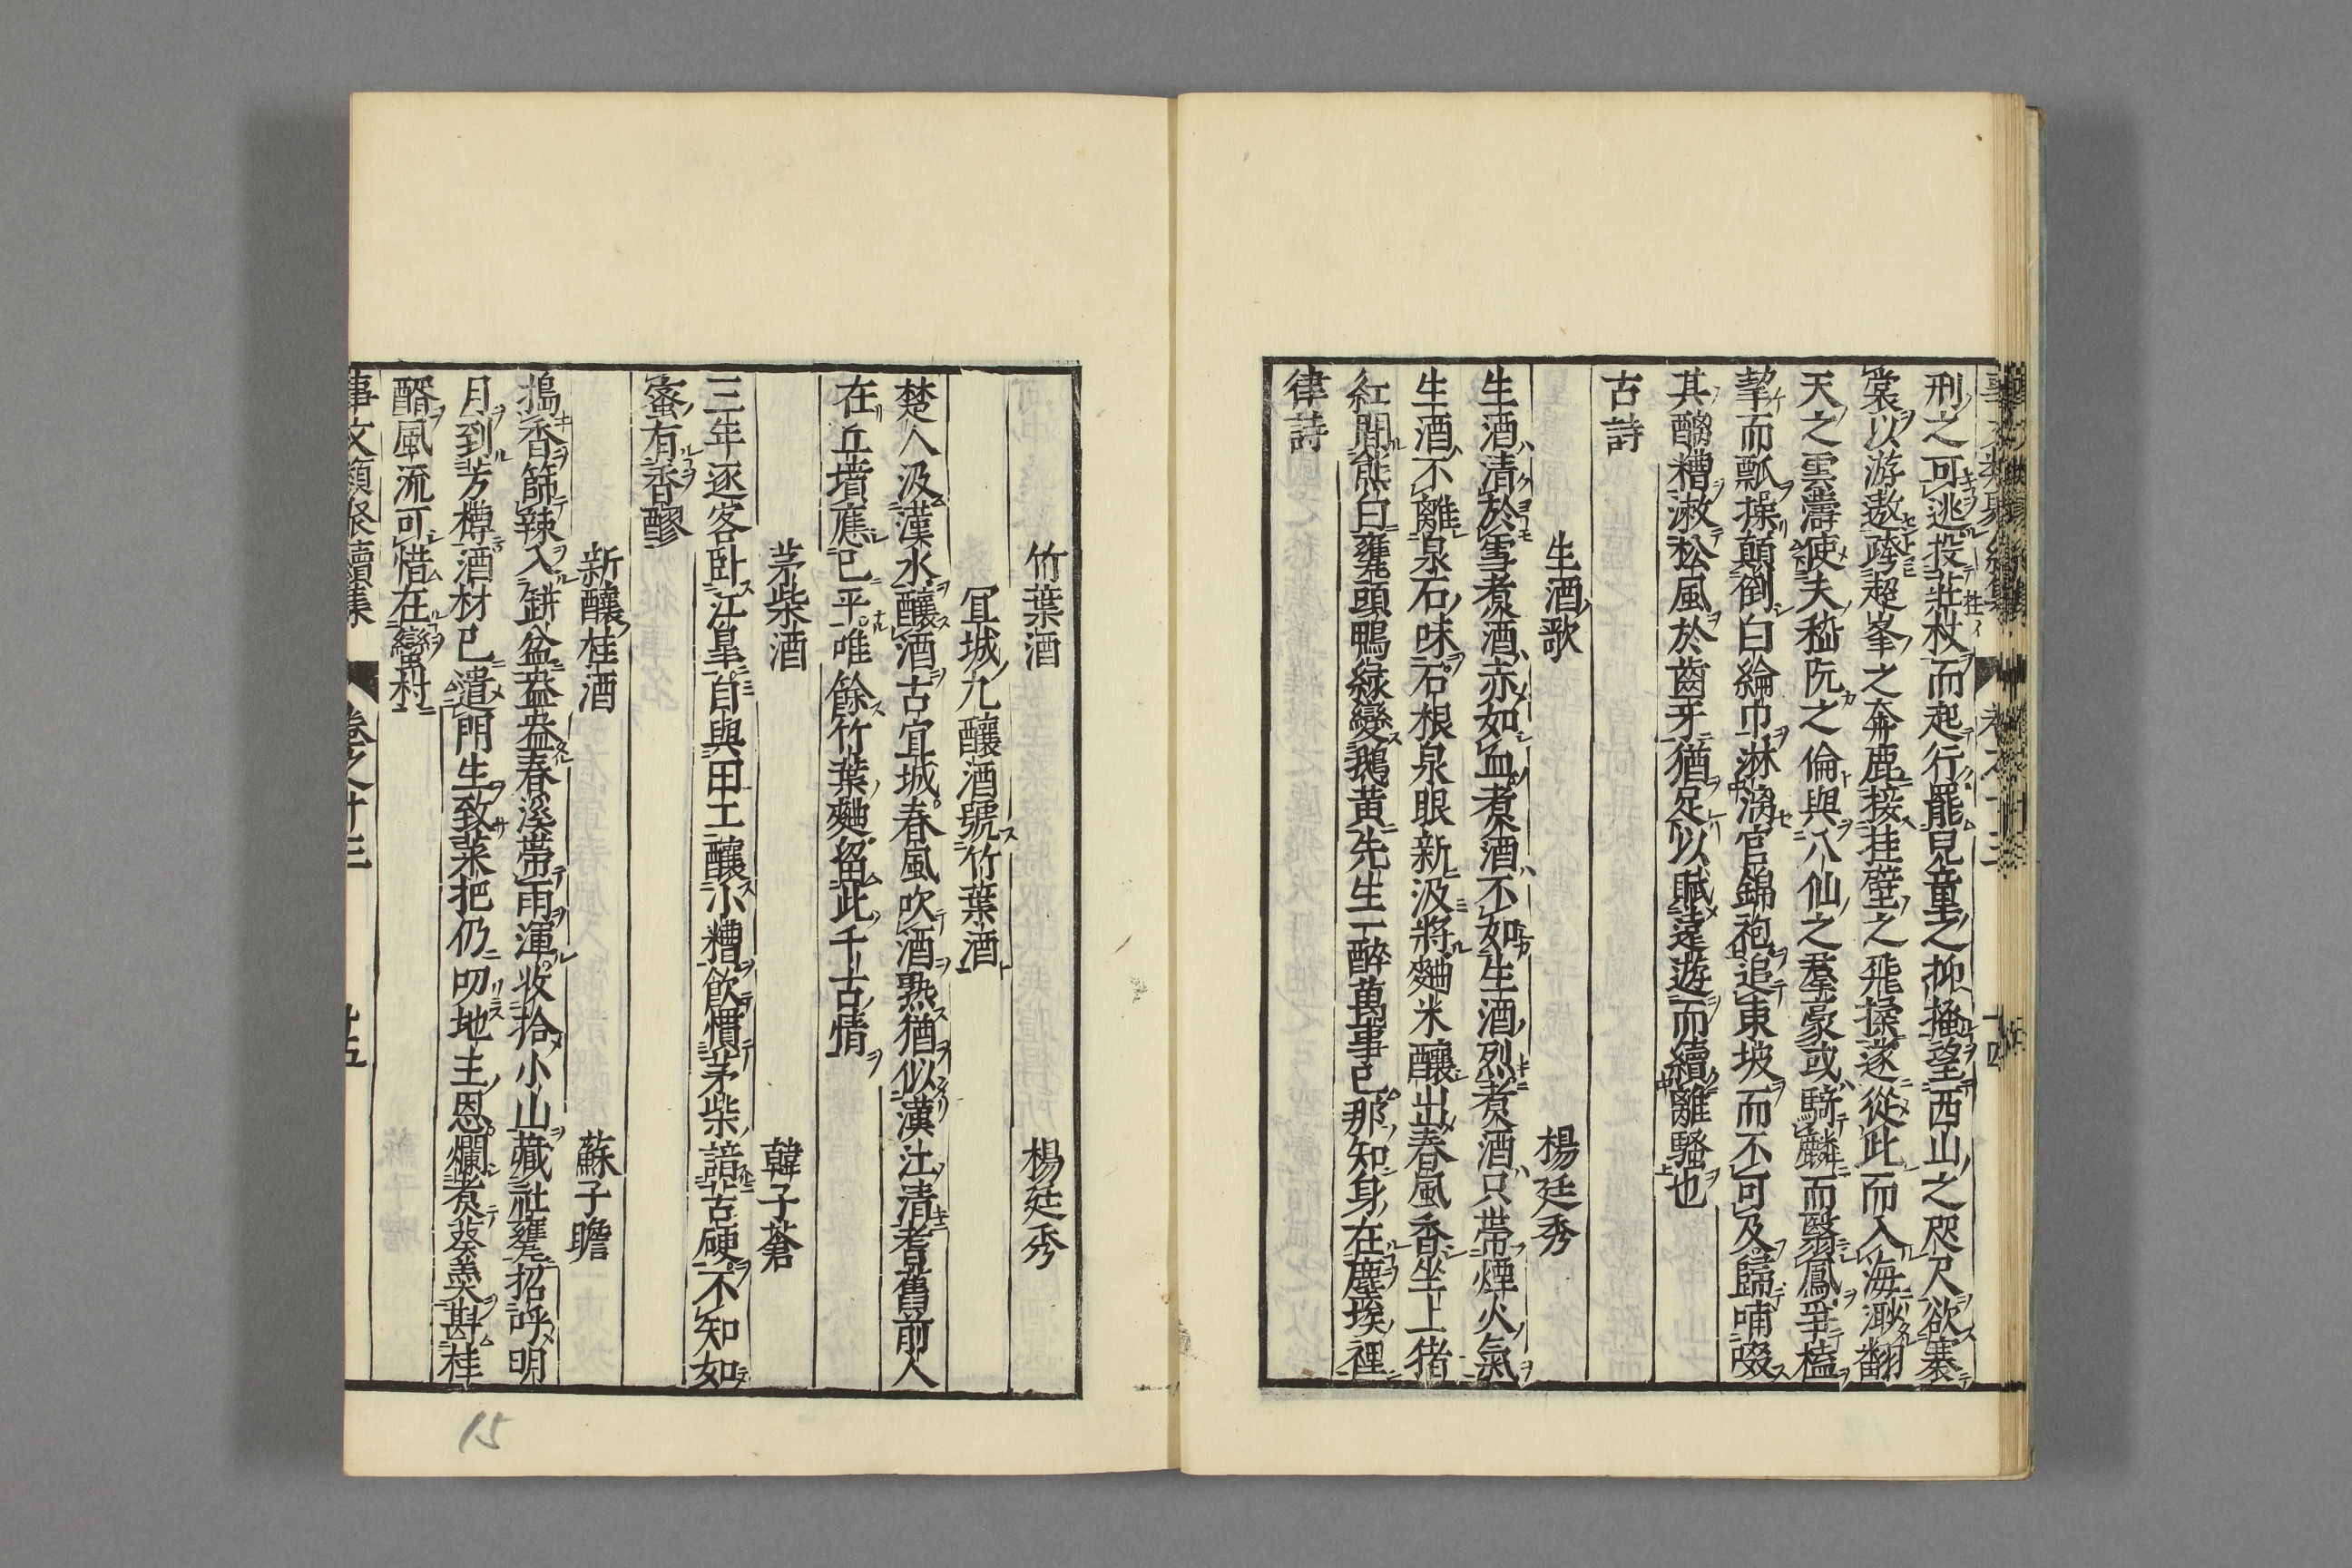 刑之可逃投莊杖而起行罷兒童之抑搔望西山之咫尺欲褰
裳以游遨跨超峯之奔鹿接挂壁之飛猱遂從此而入海渺翻
天之雲濤使夫嵇阮之倫與八仙之羣豪或騎麟而翳鳳爭榼
挈而瓢操顛倒白綸巾淋漓官錦袍追東坡而不可及歸哺啜
其醨糟漱松風於齒牙猶足以賦遠遊而續離騷也
古詩
生酒歌 楊廷秀
生酒清於雪煑酒赤如血煑酒不如生酒烈煑酒只帶煙火氣
生酒不離泉石味石根泉眼新汲將麯米釀出春風香坐上猪
紅間熊白甕頭鴨綠變鵝黃先生一醉萬事已那知身在塵埃裡
律詩
竹葉酒 楊廷秀
冝城九釀酒號竹葉酒
楚人汲漢水釀酒古宜城春風吹酒熟猶似漢江清耆舊前人
在丘墳應已平唯餘竹葉麯留此千古情
茅柴酒 韓子蒼
三年逐客卧江皐自與田工釀小糟飮慣茅柴諳苦硬不知如
蜜有香醪
新釀桂酒 蘇子瞻
搗香篩辣入缾盆盎盎春溪帶雨渾收拾小山藏社甕招呼明
月到芳樽酒材已遣門生致菜把仍叨地主恩爛煑葵羮斟桂
醑風流可惜在蠻村
事文類聚續集 卷之十三 十五
15